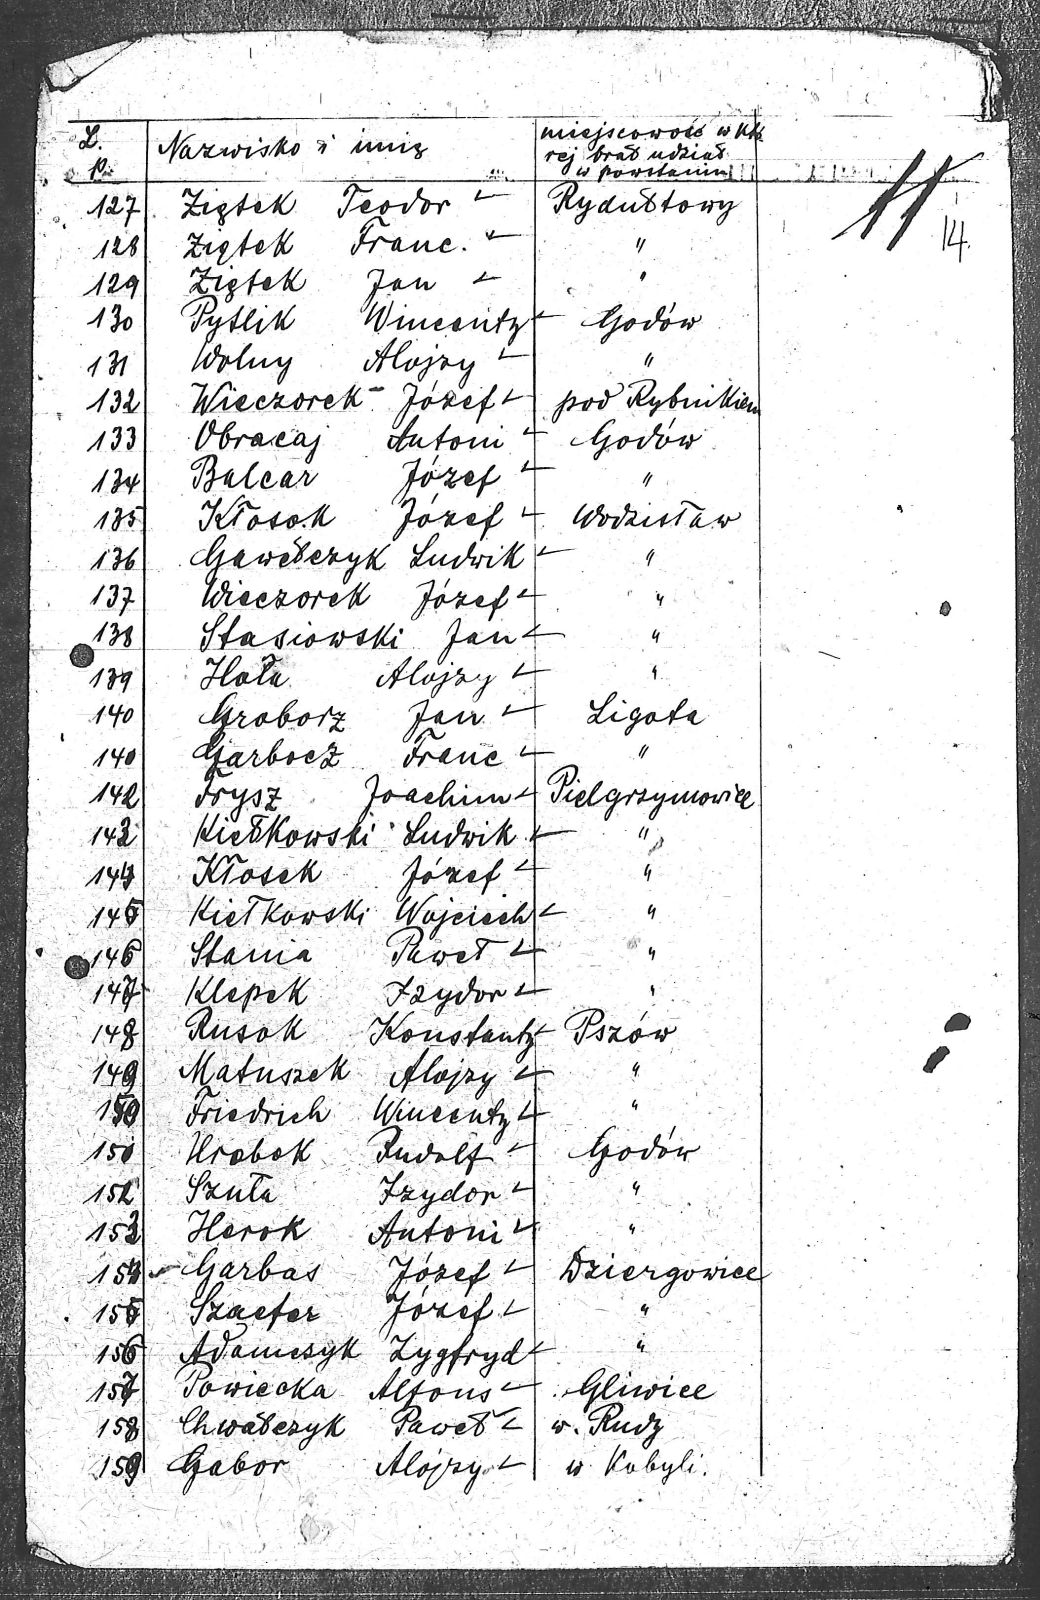 L. p. Nazwisko i imię miejscowość w któ
rej brał udział
w powstaniu
11
14.
127 Ziętek Teodor Rydułtowy
128 Ziętek Franc. "
129 Ziętek Jan "
130 Pytlik Wincenty Godów
131 Wolny Alojzy "
132 Wieczorek Józef pod Rybnikiem
133 Obracaj Antoni Godów
134 Balcar Józef "
135 Kłosok Józef Wodzisław
136 Gawełczyk Ludwik "
137 Wieczorek Józef "
138 Stasiowski Jan "
139 Hała Alojzy "
140 Groborz Jan Ligota
140 Garbocz Franc "
142 Frysz Joachim Pielgrzymowice
143 Kiełkowski Ludwik "
144 Kłosek Józef "
145 Kiełkowski Wojciech "
146 Stania Paweł "
147 Klepek Izydor "
148 Rusok Konstanty Pszów
149 Matuszek Alojzy "
150 Friedrich Wincenty "
151 Hrabok Rudolf Godów
152 Szuła Izydor "
153 Herok Antoni "
154 Garbas Józef Dziergowice
155 Szaefer Józef "
156 Adamczyk Zygfryd "
157 Powiecka Alfons Gliwice
158 Chwałczyk Paweł w. Rudz
159 Gabor Alojzy w Kobyli.